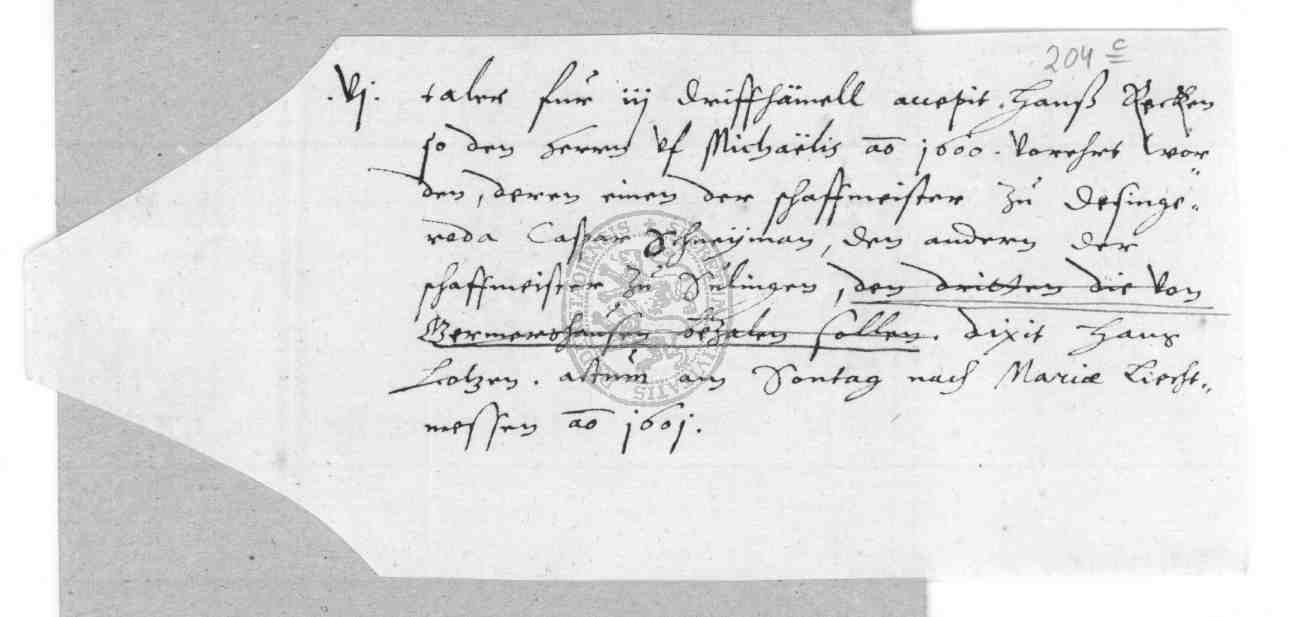 204 c
.vj. taler fur iij driffhämell accepit. Hanß Recken
so den herrn vf Michaëlis ao 1600. vorehrt wor„
den, deren einen der schaffmeister zu Desinge„
roda Caspar Schneÿman, den andern der
schaffmeister zu Sulingen, den dritten die von
Germershausen bezalen sollen. dixit Hans
Lotzen. actum am Sontag nach Mariæ Liecht„
messen ao 1601.